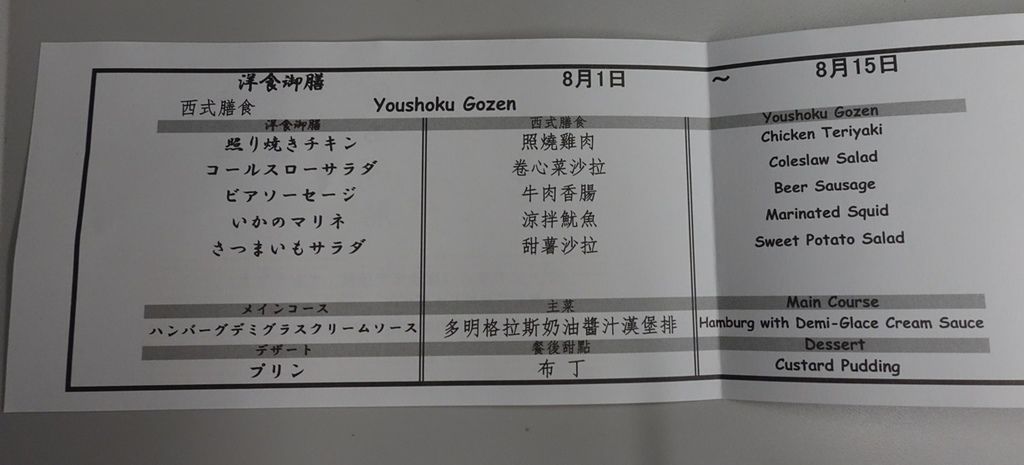 洋食御膳 8月1日 ～ 8月15日
西式膳食 Youshoku Gozen
洋食御膳 西式膳食 Youshoku Gozen
照り焼きチキン 照燒雞肉 Chicken Teriyaki
コールスローサラダ 卷心菜沙拉 Coleslaw Salad
ビアソーセージ 牛肉香腸 Beer Sausage
いかのマリネ 涼拌魷魚 Marinated Squid
さつまいもサラダ 甜薯沙拉 Sweet Potato Salad
メインコース 主菜 Main Course
ハンバーグデミグラスクリームソース 多明格拉斯奶油醬汁漢堡排 Hamburg with Demi-Glace Cream Sauce
デザート 餐後甜點 Dessert
プリン 布丁 Custard Pudding